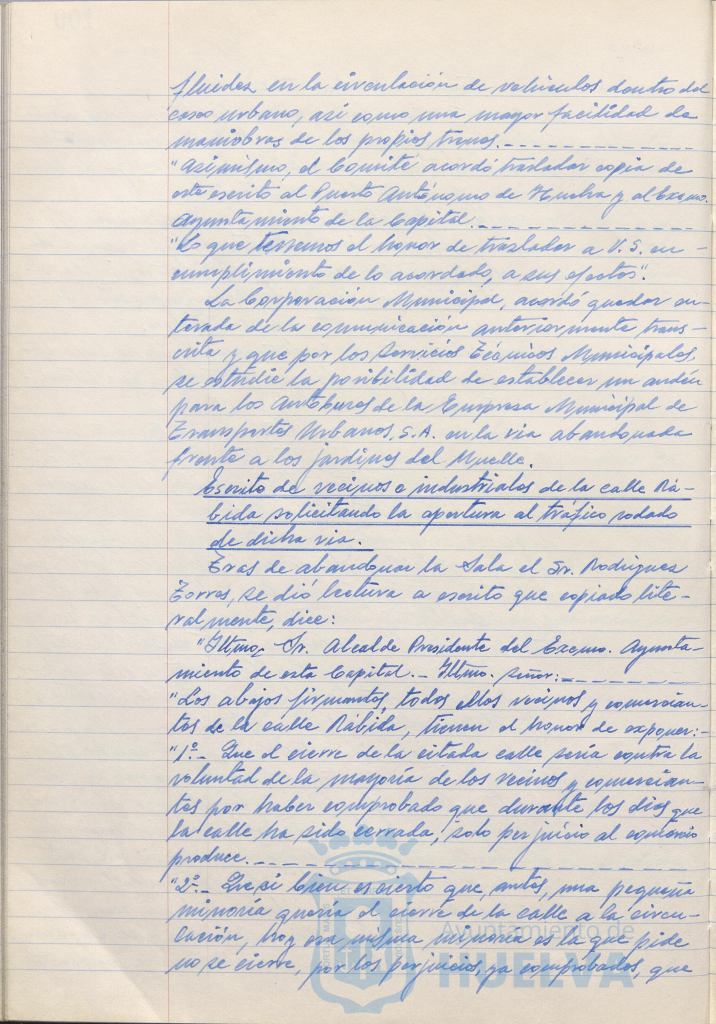 fluidez en la circulación de vehículos dentro del
casco urbano, así como una mayor facilidad de
maniobras de los propios trenes.
"Asimismo, el Comité acordó trasladar copia de
este escrito al Puerto Autónomo de Huelva y al Excmo.
Ayuntamiento de la Capital.
"Lo que tenemos el honor de trasladar a V.S. en
cumplimiento de lo acordado, a sus efectos".
La Corporación Municipal, acordó quedar en-
terada de la comunicación anteriormente trans-
crita y que por los Servicios Técnicos Municipales,
se estudie la posibilidad de establecer un andén
para los Autobuses de la Empresa Municipal de
Transportes Urbanos, S.A. en la vía abandonada
frente a los jardines del Muelle.
Escrito de vecinos e industriales de la calle Rá-
bida solicitando la apertura al tráfico rodado
de dicha vía.
Tras de abandonar la Sala el Sr. Rodríguez
Torres, se dió lectura a escrito que copiado lite-
ralmente, dice:
"Iltmo. Sr. Alcalde Presidente del Excmo. Ayunta-
miento de esta Capital.- Iltmo. Señor:-
"Los abajos firmantes, todos ellos vecinos y comercian-
tes de la calle Rábida, tienen el honor de exponer:-
"1º.- Que el cierre de la citada calle sería contra la
voluntad de la mayoría de los vecinos y comercian-
tes por haber comprobado que durante los días que
la calle ha sido cerrada, solo perjuicio al comercio
produce.-
"2º.- Que si bien es cierto que, antes, una pequeña
minoría quería el cierre de la calle a la circu-
lación, hoy esa misma minoría es la que pide
no se cierre, por los perjuicios, ya comprobados, que
Ayuntamiento de
HUELVA